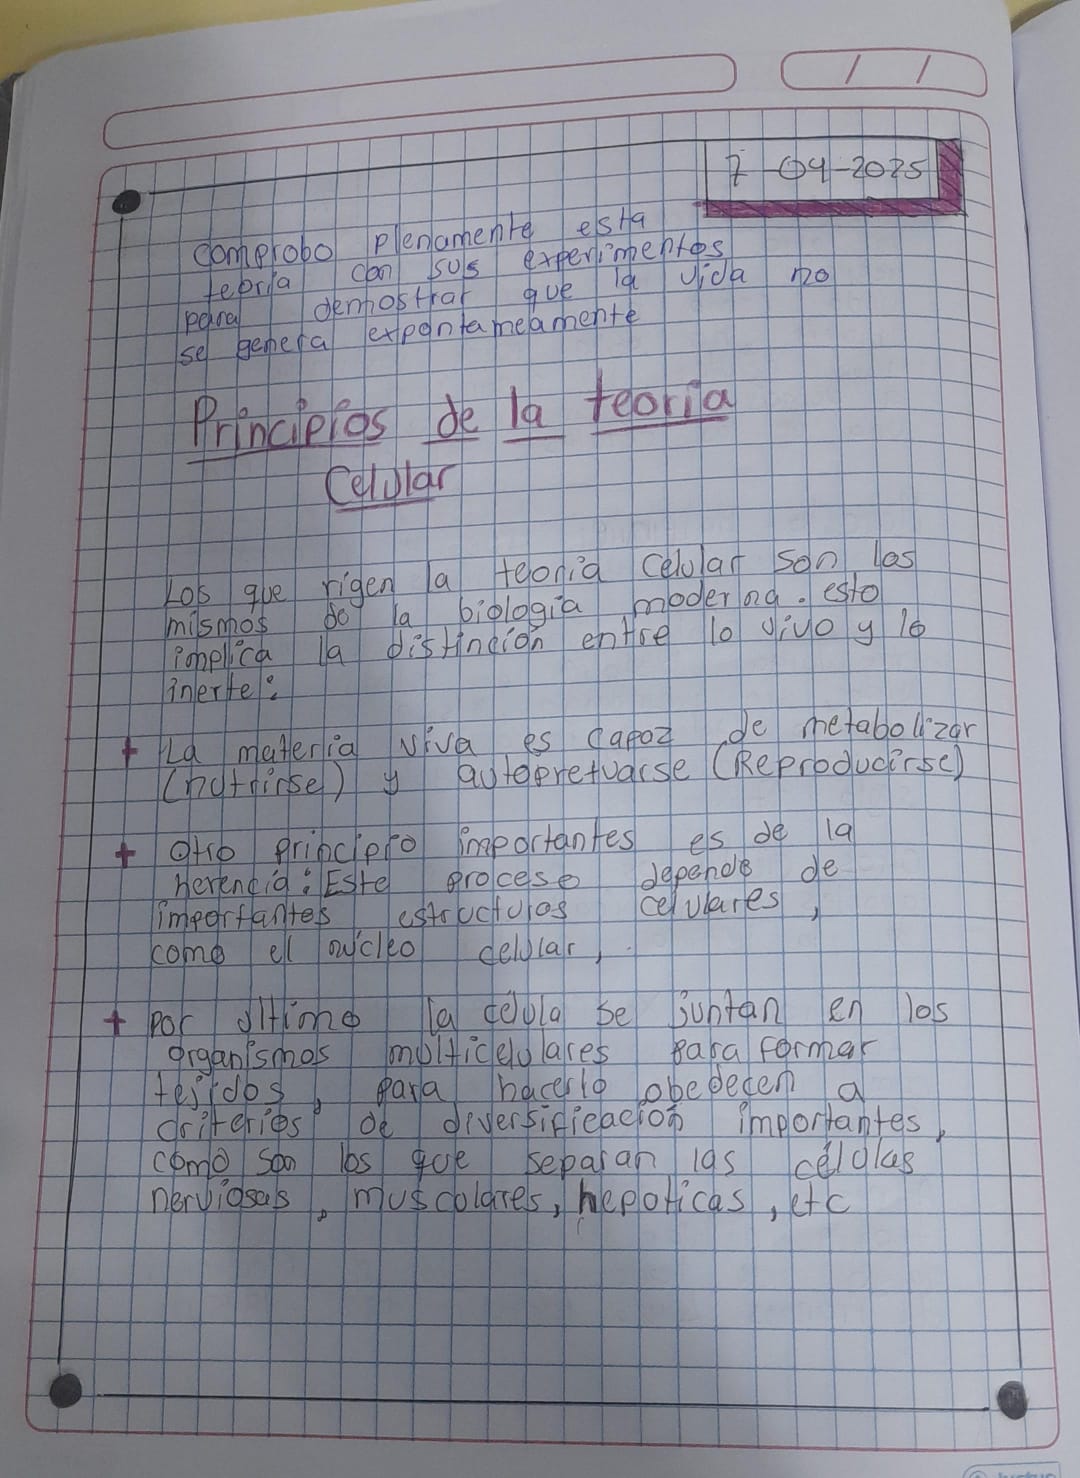 7-04-2025
comprobo plenamente esta
teoria con sus experimentos
para demostrar que la vida no
se genera expontameamente
Principios de la teoria
Celular
Los que rigen la teoria celular son los
mismos de la biologia moderna. esto
implica la distinción entre lo vivo y lo
inerte:
+ La materia viva es capaz de metabolizar
(nutrirse) y autopretuarse (Reproducirse)
+ Otro principio importantes es de la
herencia: Este proceso depende de
importantes estructuras celulares,
como el nucleo celular,
+ por ultimo la célula se juntan en los
organismos multicelulares para formar
tejidos, para hacerlo obedecen a
criterios de diversificación importantes,
como son los que separan las células
nerviosas, musculares, hepaticas, etc